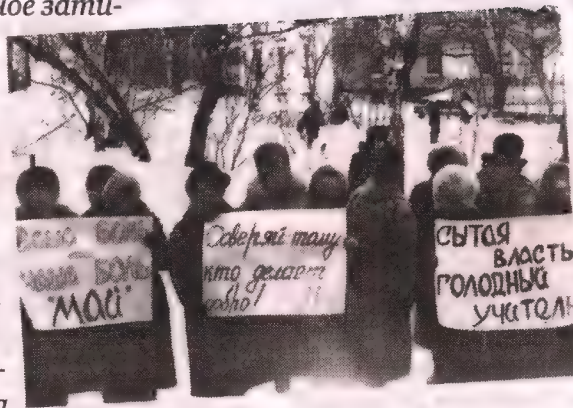 ное зати-
ваша боль
наша боль
"МАЙ"
Доверяй тому
кто делает
добро!
СЫТАЯ
ВЛАСТЬ
ГОЛОДНЫЙ
УЧИТЕЛЬ
-
а